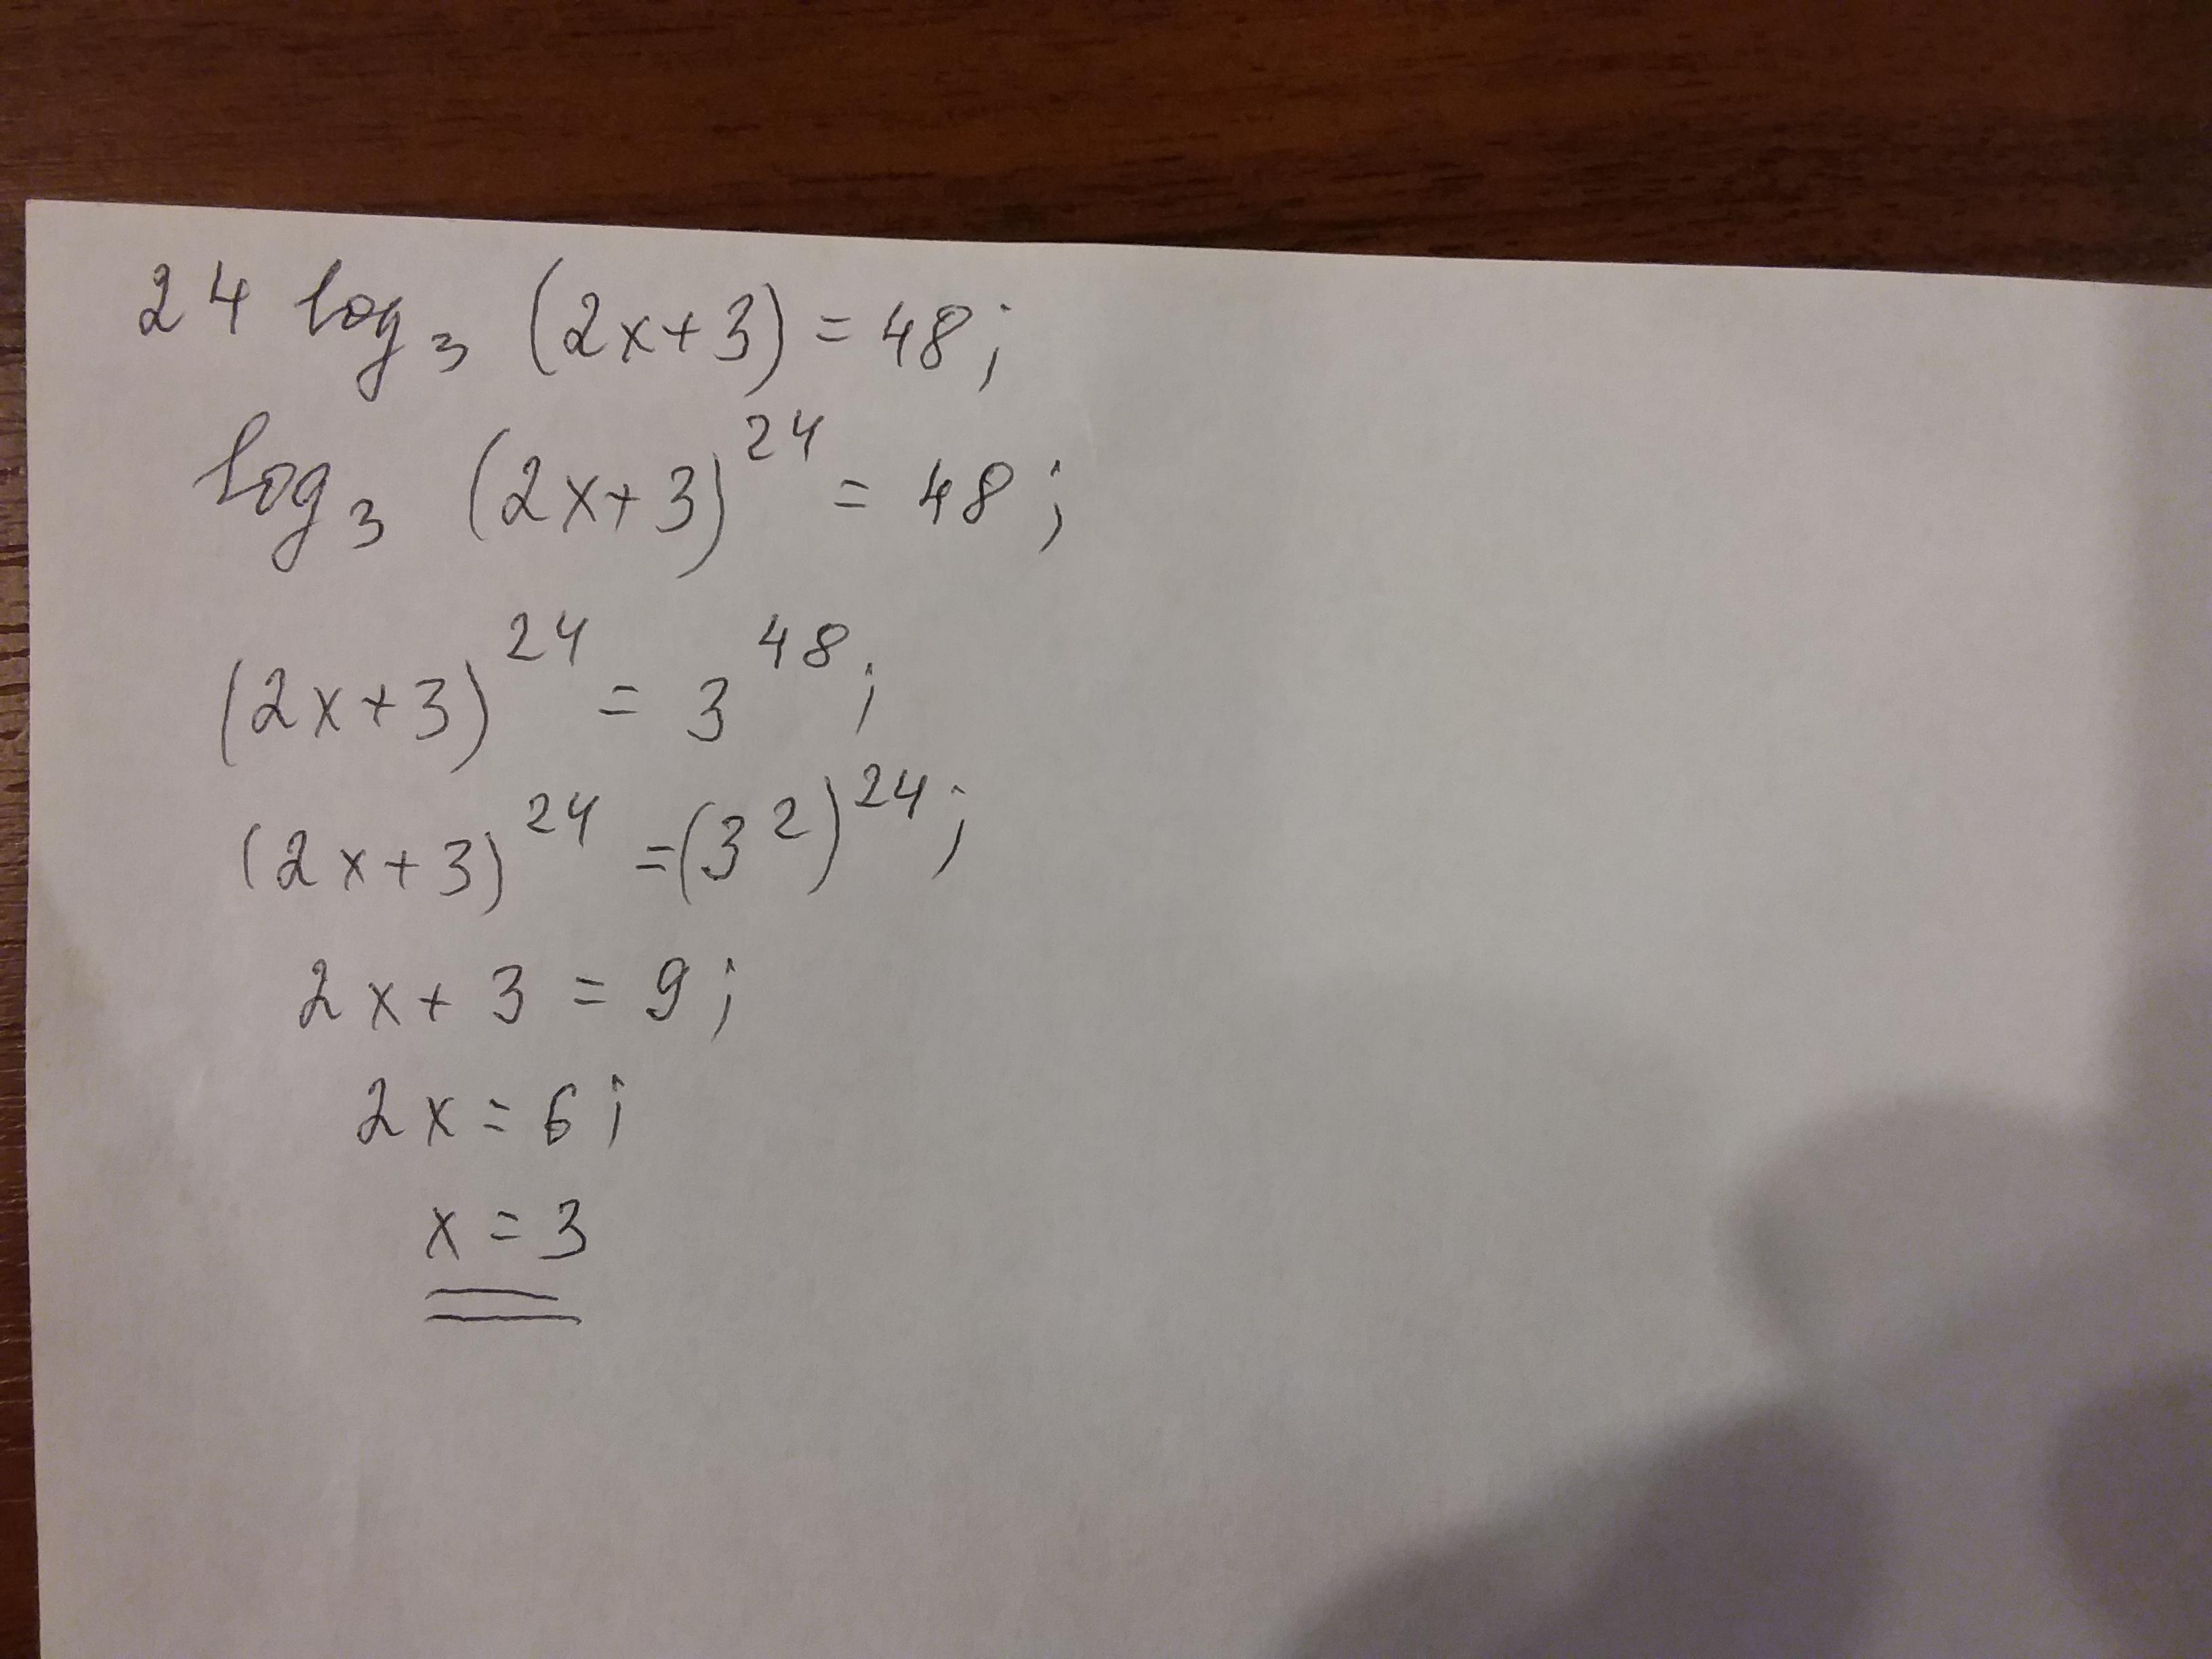 24 log₃ (2x+3) = 48;
log₃ (2x+3)²⁴ = 48;
(2x+3)²⁴ = 3⁴⁸;
(2x+3)²⁴ = (3²)²⁴;
2x+3 = 9;
2x = 6;
x = 3